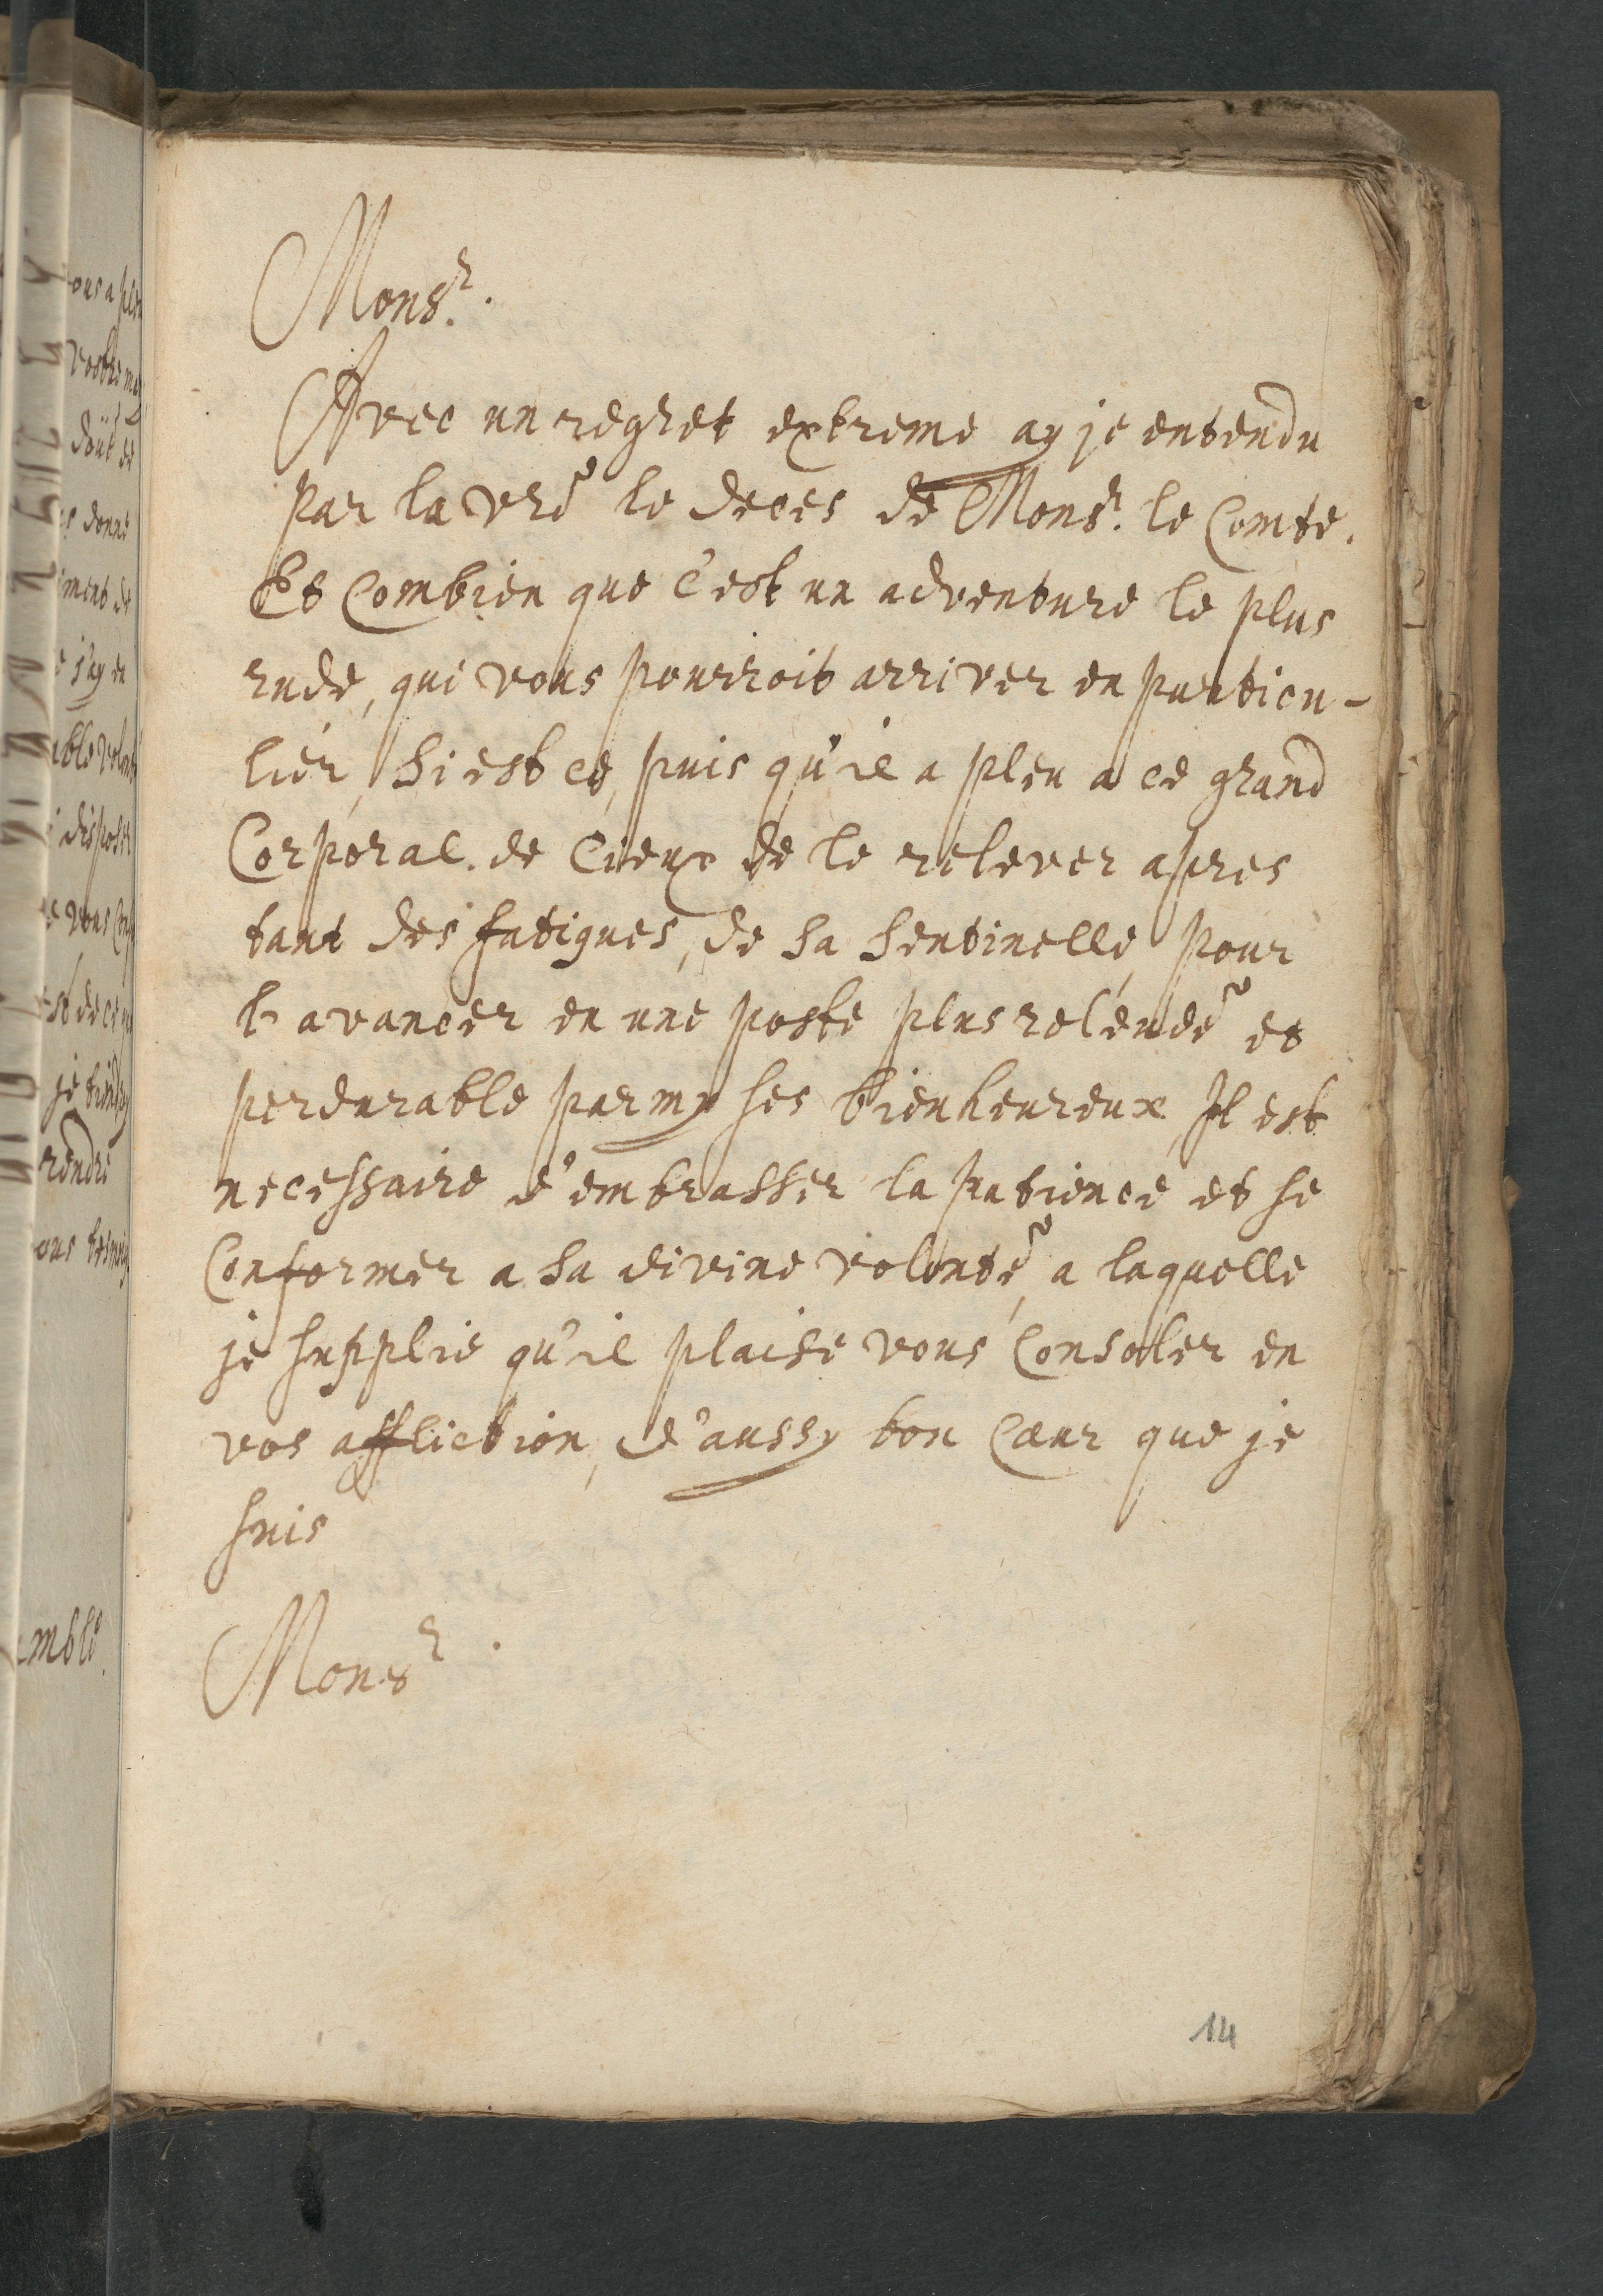 Mons.r
Avec un regret extreme ay je entendu
par la vre le deces de Mons.r le Comte.
Et Combien que c'est un adventure le plus
rude, qui vous pourroit arriver en particu-
lier, si est ce, puis qu'il a pleu a ce grand
Corporal. de Cieux de le relever apres
tant des fatigues, de sa sentinelle, pour
l'avancer en une poste plus releuée et
perdurable parmy ses bienheureux, Il est
necessaire d'embrasser la patience et se
Conformer a sa divine volonté, a laquelle
je supplie qu'il plaise vous Consoler en
vos affliction, d'aussy bon Cœur que je
suis
Mons.r
14
ous a
vostre
doüt de
donné
iment de
j'ay en
able
disposer
vous
st de ce
je
rendre
ous
emblé.